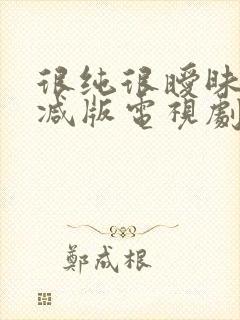 很纯很曖昧
减版電視劇
鄭成根